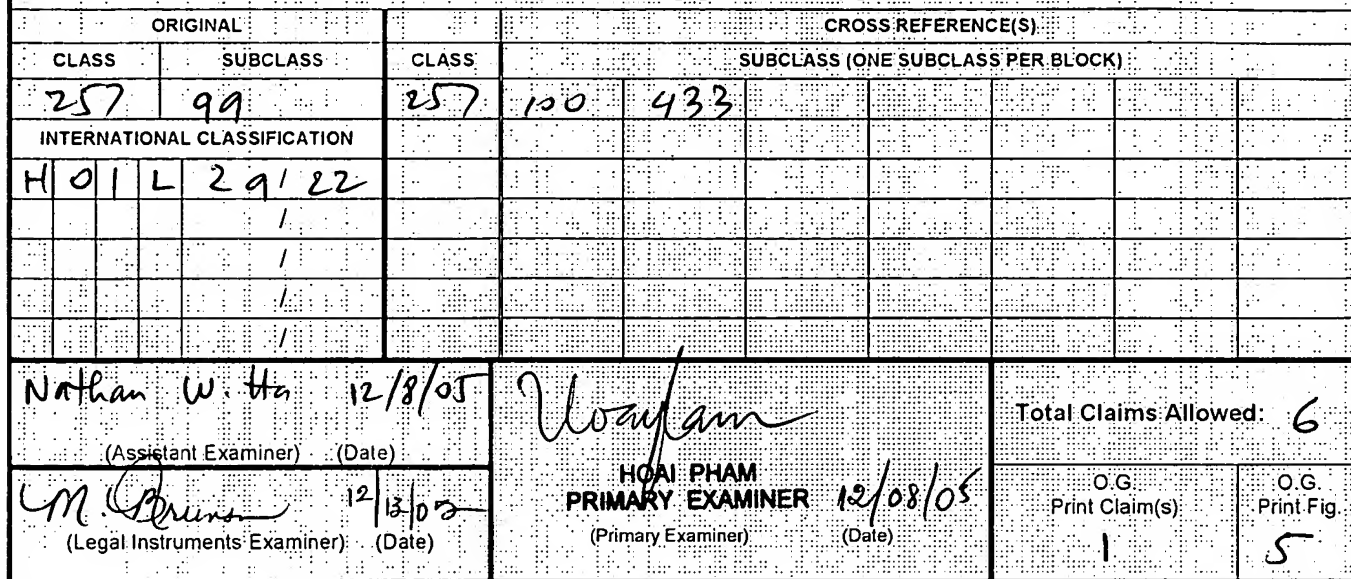 ORIGINAL CROSS REFERENCE(S)
CLASS SUBCLASS CLASS SUBCLASS (ONE SUBCLASS PER BLOCK)
257 99 257 100 433
INTERNATIONAL CLASSIFICATION
H 0 1 L 29/22
/
/
/
/
Nathan W. Ha 12/8/05
(Assistant Examiner) (Date)
M. 12/13/05
(Legal Instruments Examiner) (Date)
HOAI PHAM
PRIMARY EXAMINER 12/08/05
(Primary Examiner) (Date)
Total Claims Allowed: 6
O.G. Print Claim(s)
1
O.G. Print Fig.
5